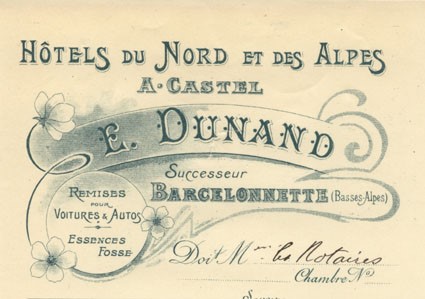 HÔTELS DU NORD ET DES ALPES
A. CASTEL
E. DUNAND
SUCCESSEUR
BARCELONNETTE (BASSES-ALPES)
REMISES
POUR
VOITURES & AUTOS
ESSENCES
FOSSE
Doit Mrs les Notaires
Chambre No